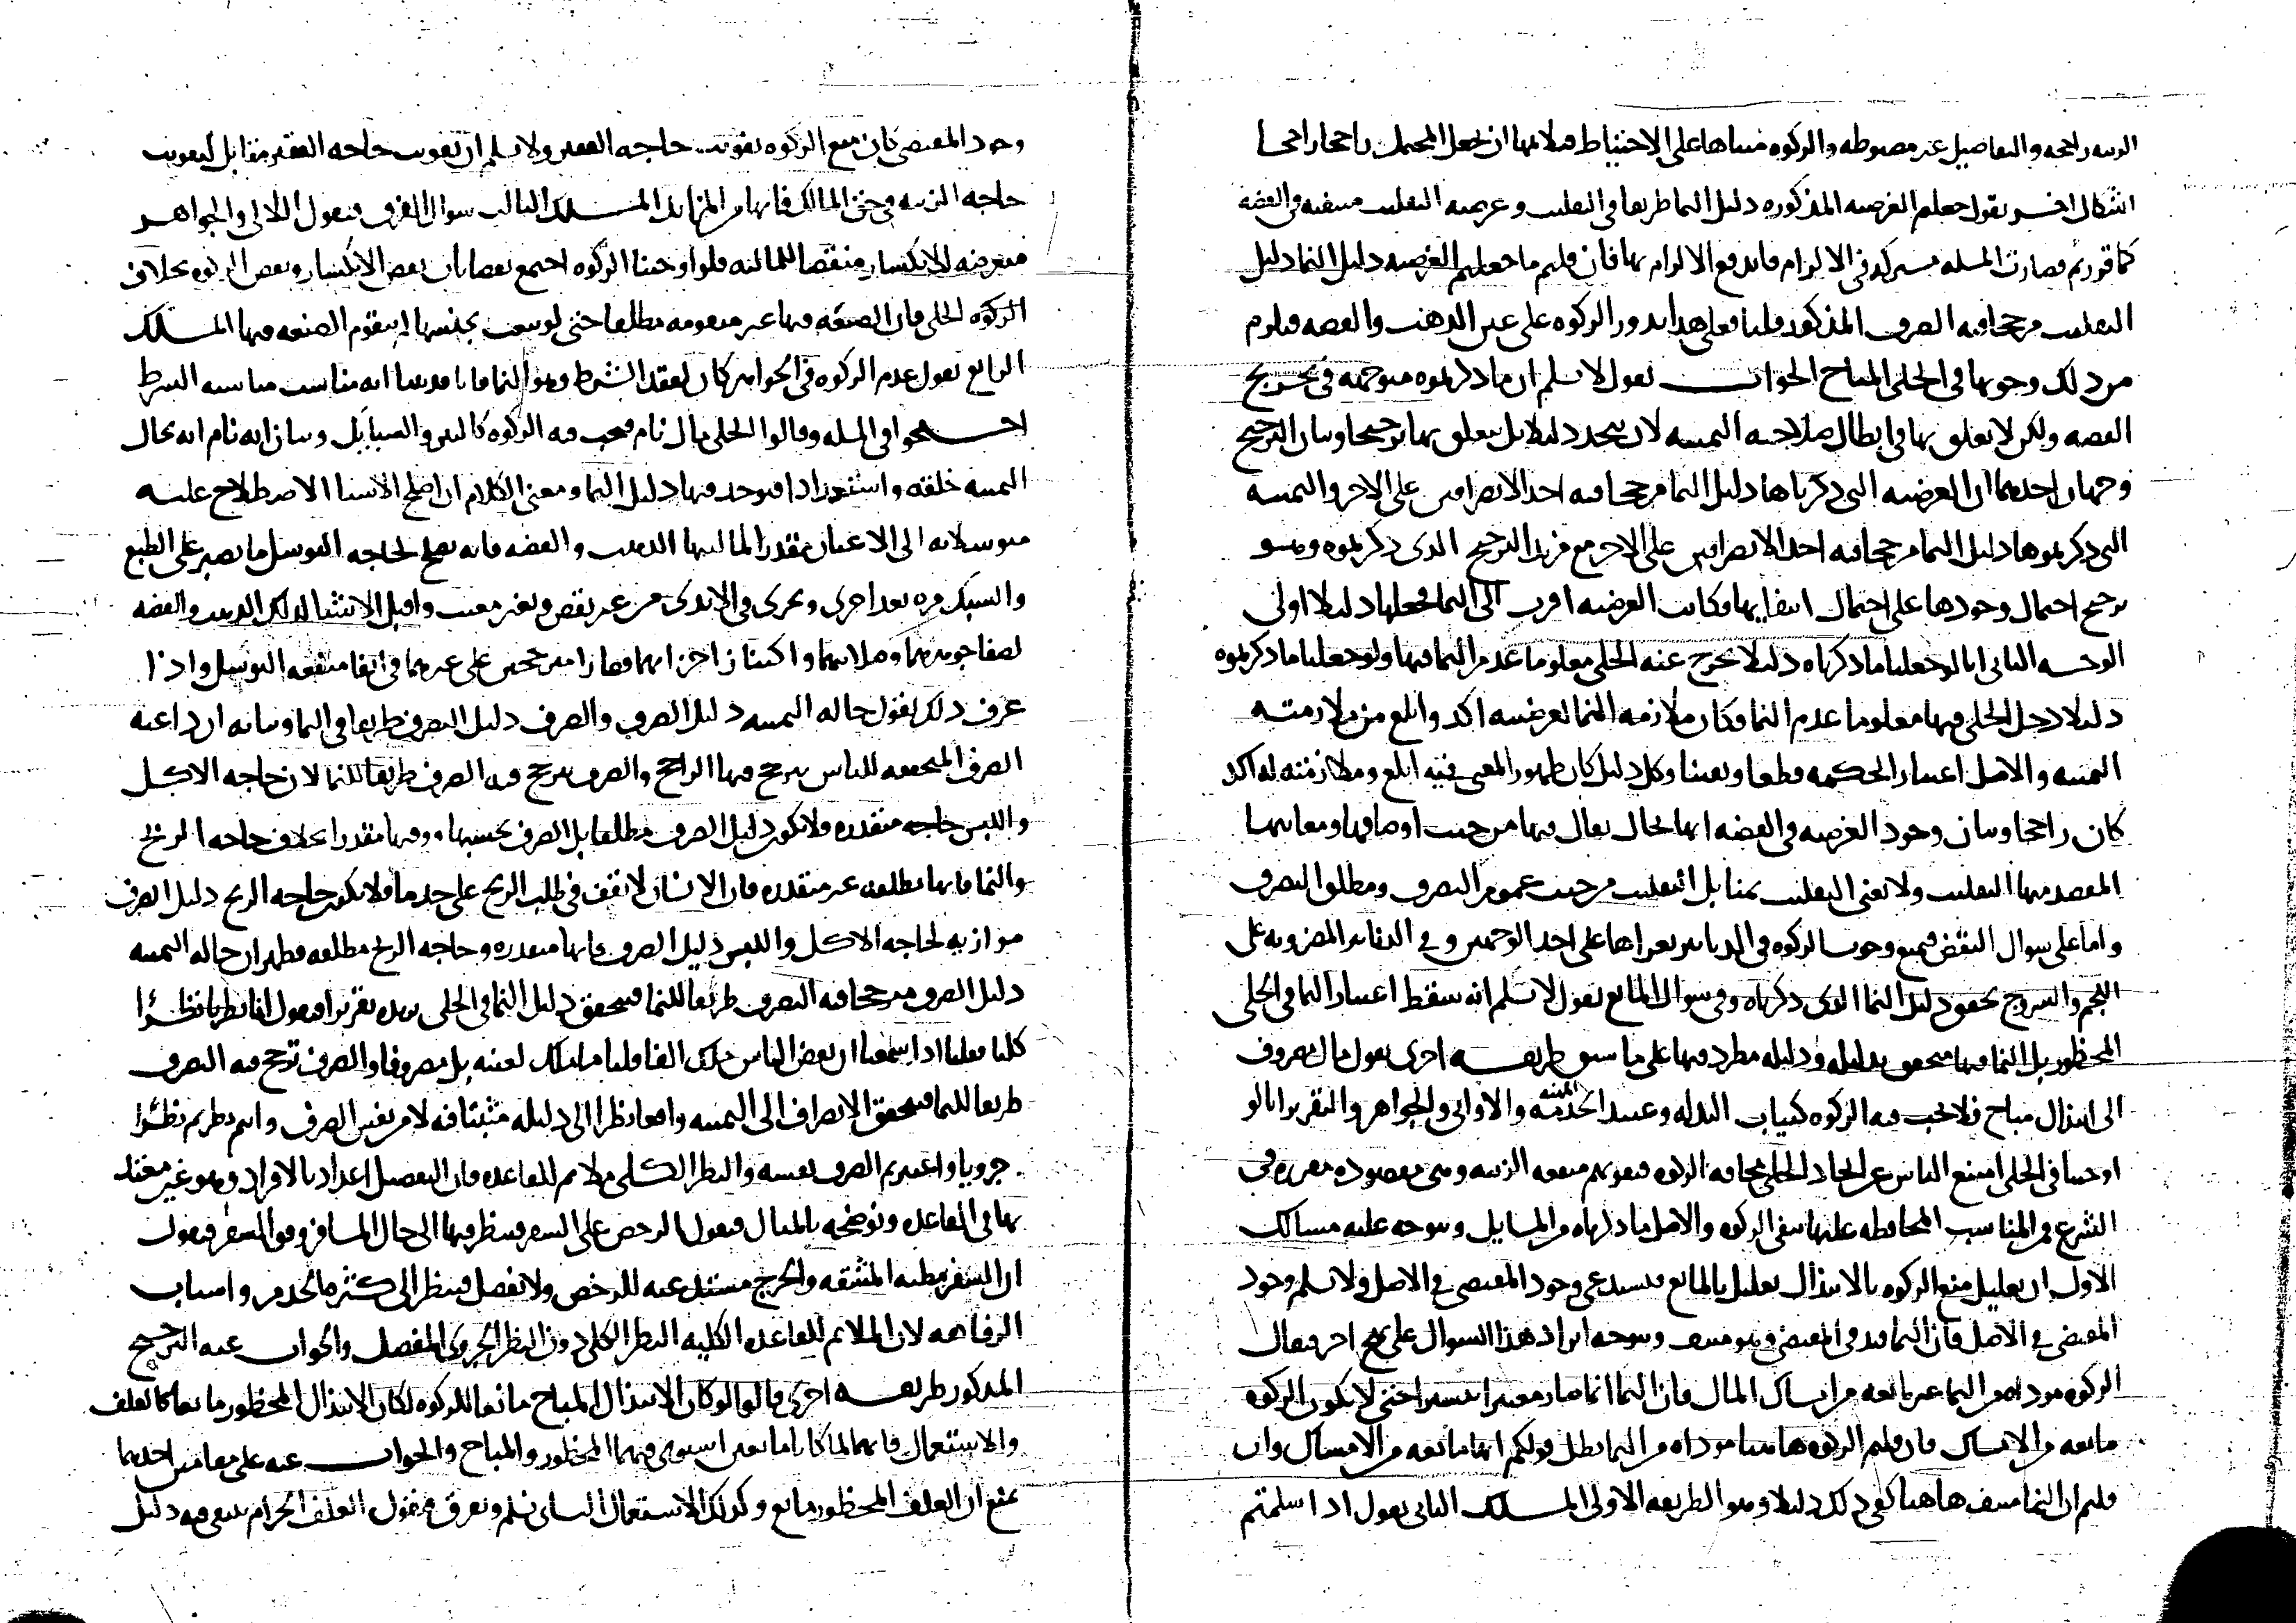 الزينه راجحه والتفاصيل غير مضبوطه والزكوه مبناها على الاحتياط فلا
اشكال يقول جعلتم الغرضيه المذكوره دليل النما طريقا في التقليب وغرضيه التقليب منتفيه في الفضه
كما قررتم فصارت المسله مشتركه في الالزام فاندفع الالزام بها فان قلتم ما جعلتم الغرضيه دليل النما دليل
التقليب مرجحا فيه الصرف المذكور قلنا فعلى هذا يدور الزكوه على عين الذهب والفضه فيلزم
من ذلك وجوبها في الحلي المباح الجواب نقول لا نسلم ان ما ذكرتموه متوجه في تخريج
الفضه ولكن لا تعلق بها في ابطال صلاحيه الثمنيه لان تتخذ دليلا بل يتعلق بها ترجيحا وبيان الترجيح
وجهان احدهما ان الغرضيه التي ذكرناها دليل النما مرجحا فيه احد الانصرافين على الاخر والثمنيه
التي ذكرتموها دليل النما مرجحا فيه احد الانصرافين على الاخر مع مزيد الترجيح الذي ذكرتموه وهو
ترجيح احتمال وجودها على احتمال انتفايها فكانت الغرضيه اقرب الى النما فجعلها دليلا اولى
الوجه الثاني انا لو جعلنا ما ذكرناه دليلا يخرج عنه الحلي معلوما عدم النما فيها ولو جعلنا ما ذكرتموه
دليلا دخل الحلي فيها معلوما عدم النما فكان ملازمه النما لغرضيه اكد وابلغ من ملازمته
الثمنيه والاصل اعتبار الحكمه قطعا ويقينا وكل دليل كان ظهور المعنى فيه ابلغ وملازمته له اكد
كان راجحا وبيان وجود الغرضيه في الفضه انها بحال يقال فيها من حيث اوصافها ومعانيها
المقصد منها التقليب ولا نعني التقليب بل التقليب من حيث عموم التصرف ومطلق التصرف
واما على سوال النقض فيمنع وجوب الزكوه في الدنانير على احد الوجهين وفي الدنانير المضروبه على
اللجم والسروج تحقق دليل النما الذي ذكرناه وفي سوال المانع نقول لا نسلم انه سقط اعتبار النما في الحلي
المحظور بل النما فيها متحقق بدليله ودليله مطرد فيها على ما سبق طريقه اخرى نقول مال مصروف
الى ابتذال مباح فلا تجب فيه الزكوه كثياب البذله وعبيد الخدمه والاواني والجواهر والتقرير انا لو
اوجبنا في الحلي امتنع الناس عن اتخاذ الحلي مخافه الزكوه فيفوتهم منفعه الزينه وهي مقصوده مقرره في
الشرع فمن المناسب المحافظه عليها بنفي الزكوه والاصل ما ذكرناه من المسايل ويتوجه عليه مسالك
الاول ان تعليل منع الزكوه بالابتذال تعليل بالمانع فيستدعي وجود المقتضي في الاصل ولا نسلم وجود
المقتضي في الاصل فان النما قيد في المقتضي وهو منتف ويتوجه ايراد هذا السوال على نهج اخر فيقال
الزكوه موداه من النما غير مانعه من امساك المال فان النما انما صار معتبرا تيسيرا حتى لا تكون الزكوه
مانعه من الامساك فان قلتم الزكوه هاهنا موداه من النما بطل قولكم انها مانعه من الامساك وان
قلتم ان النما منتف هاهنا كفى ذلك دليلا وهو الطريقه الاولى المسلك الثاني نقول اذا سلمتم
وجود المقتضي كان منع الزكوه تفويت حاجه الفقير ولا نسلم ان تفويت حاجه الفقير مقابل لتفويت
حاجه الزينه في حق المالك فانها من المزايد المسلك الثالث سوال الفرق فنقول اللالي والجواهر
متعرضه للانكسار منقصا للماليه فلو اوجبنا الزكوه اجتمع نقصانان نقص الانكسار ونقص الزكوه بخلاف
الزكوه الحلي فان الصنعه فيها غير متقومه مطلقا حتى لو بيعت بجنسها لم يتقوم الصنعه فيها المسلك
الرابع نقول عدم الزكوه في الجواهر كان لفقد الشرط وهو النما فانا قد بينا انه مناسب مناسبه الشرط
احتجوا في المسله وقالوا الحلي مال نام فيجب فيه الزكوه كالتبر والسبايك وبيان انه نام انه بحال
الثمنيه خلقه واستعدادا فيوجد فيها دليل النما ومعنى الكلام ان اصلح الاشيا الاصطلاح عليه
متوسلا به الى الاعيان بقدر الماليها الذهب والفضه فانه يصلح لحاجه التوسل ما يصبر على الطبع
والسبك مره بعد اخرى ويجرى في الايدي من غير نقص وتغير معيب واقبل الاشيا لذلك الذهب والفضه
لصفا جوهرهما وصلابتهما واكتناز اجزايهما فصارا مترجحين على غيرهما في ايفا منفعه التوسل واذا
عرف ذلك نقول حاله الثمنيه دليل الصرف والصرف دليل التصرف طريقا في النما وبيانه ان داعيه
الصرف المتحققه للناس يترجح فيها الراجح والصرف يترجح فيه الصرف طريقا للنما لان حاجه الاكل
واللبس حاجه متقدره فلا تكون دليل الصرف مطلقا بل الصرف بحسبها ووقتها مقدرا بخلاف حاجه الربح
والنما فانها مطلقه غير متقدره فان الانسان لا يقف في طلب الربح على حد ما فلا تكون حاجه الربح دليل الصرف
موازيه لحاجه الاكل واللبس دليل الصرف فانها متقدره وحاجه الربح مطلقه فظهر ان حاله الثمنيه
دليل الصرف مرجحا فيه التصرف طريقا للنما فيتحقق دليل النما في الحلي نزيده تقريرا فنقول انا نظرنا نظرا
كليا فعلمنا اذا سمعنا ان بعض الناس ملك الفا قلنا ما ملك لعينه بل مصروفا والصرف ترجح فيه التصرف
طريقا للنما فيتحقق الانصراف الى الثمنيه واقعا نظرا الى دليله مثبتا فيه لا من نفس الصرف وانتم نظرتم نظرا
جزويا واعتبرتم الصرف نفسه والنظر الكلي ملايم للقاعده فان التفصيل اعداد بالافراد وهو غير معتد
بها في القاعده ونوضحه بالمثال فنقول الرخص على السفر فينظر فيها الى حال المسافر وهو السفر فنقول
ان السفر مظنه المشقه والحرج مستدعيه للرخص ولا نفصل فننظر الى كثره الخدم واسباب
الرفاهيه لان الملايم للقاعده الكليه النظر الكلي دون النظر الجزوي المفصل والجواب عنه الترجيح
المذكور طريقه اخرى قالوا لو كان الابتذال المباح مانعا للزكوه لكان الابتذال المحظور مانعا كالعلف
والاستعمال فانهما لما كانا مانعين استوى فيهما المحظور والمباح والجواب عنه على مقامين احدهما
نمنع ان العلف المحظور مانع وكذلك الاستعمال الثاني نسلم ونفرق فنقول العلف الحرام ينتفي فيه دليل